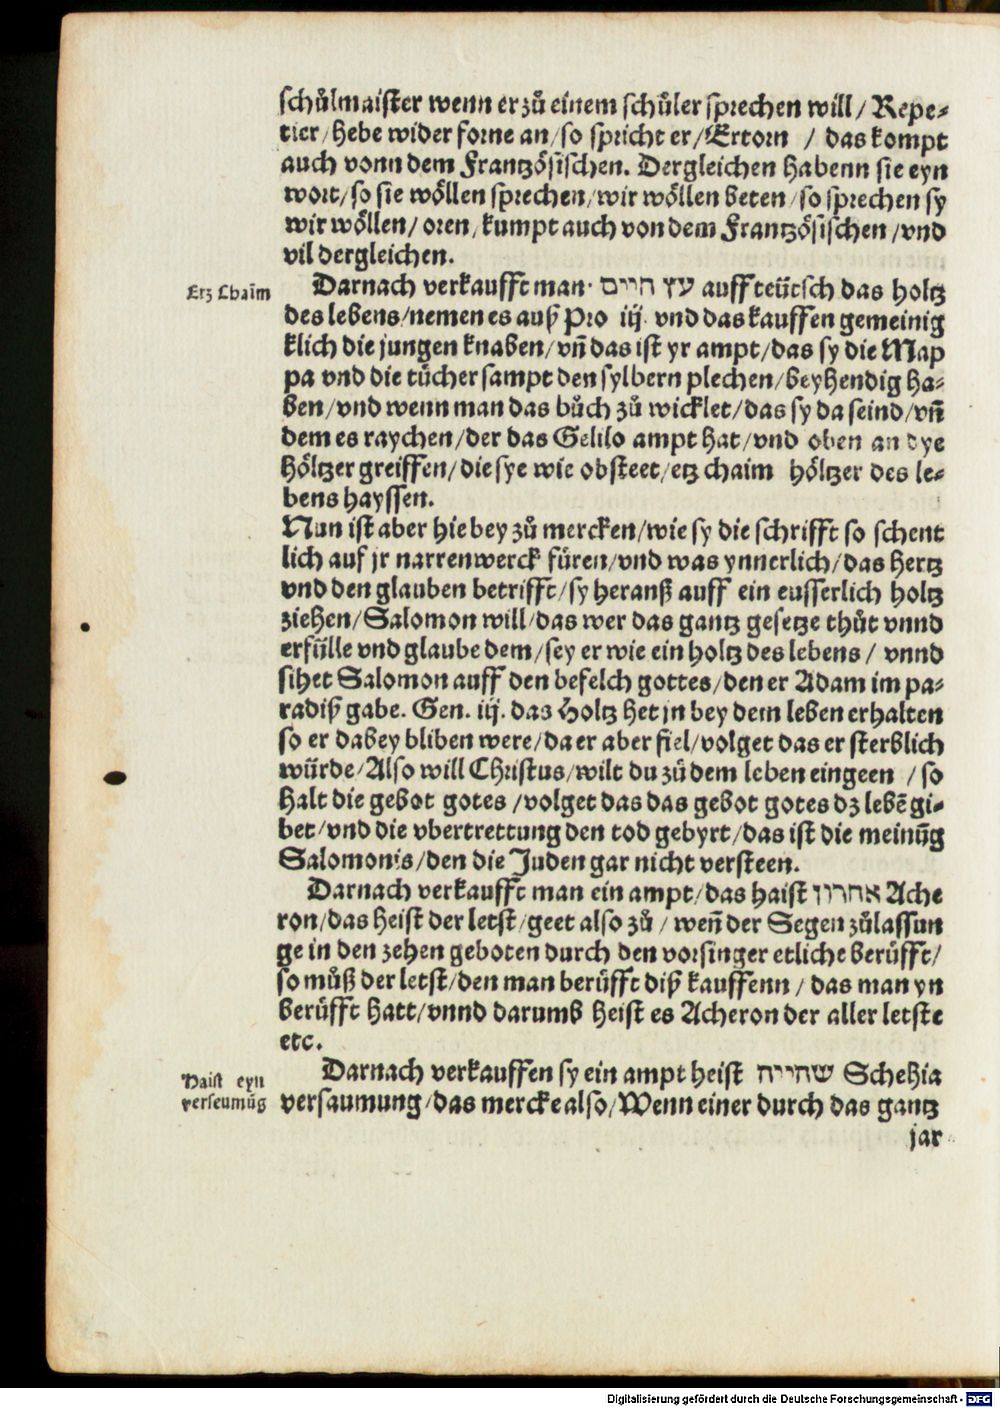 schůlmaister wenn er zů einem schůler sprechen will / Repe⸗
tier / hebe wider forne an / so spricht er / Ertorn / das kompt
auch vonn dem Frantzösischen. Dergleichen habenn sie eyn
wort / so sie wöllen sprechen / wir wöllen beten / so sprechen sy
wir wöllen / oren / kumpt auch von dem Frantzösischen / vnd
vil dergleichen.
Etz Chaim
Darnach verkaufft man עץ חיים auff teütsch das holtz
des lebens / nemen es auß Pro iij. vnd das kauffen gemeinig
klich die jungen knaben / vñ das ist yr ampt / das sy die Map
pa vnd die tücher sampt den sylbern plechen / beyhendig ha⸗
ben / vnd wenn man das bůch zů wicklet / das sy da seind / vñ
dem es raychen / der das Gelilo ampt hat / vnd oben an dye
höltzer greiffen / die sye wie obsteet / etz chaim höltzer des le⸗
bens hayssen.
Nun ist aber hie bey zů mercken / wie sy die schrifft so schent
lich auf jr narrenwerck füren / vnd was ynnerlich / das hertz
vnd den glauben betrifft / sy heranß auff ein eusserlich holtz
ziehen / Salomon will / das wer das gantz gesetze thůt vnnd
erfülle vnd glaube dem / sey er wie ein holtz des lebens / vnnd
sihet Salomon auff den befelch gottes / den er Adam im pa⸗
radiß gabe. Gen. iij. das Holtz het jn bey dem leben erhalten
so er dabey bliben were / da er aber fiel / volget das er sterblich
würde / Also will Christus / wilt du zů dem leben eingeen / so
halt die gebot gotes / volget das das gebot gotes dz lebē gi⸗
bet / vnd die vbertrettung den tod gebyrt / das ist die meinūg
Salomonis / den die Juden gar nicht versteen.
Darnach verkaufft man ein ampt / das haist אחרון Ache
ron / das heist der letst / geet also zů / weñ der Segen zůlassun
ge in den zehen geboten durch den vorsinger etliche berüfft /
so můß der letst / den man berüfft diß kauffenn / das man yn
berüfft hatt / vnnd darumb heist es Acheron der aller letste
etc.
Haist eyn
verseumūg
Darnach verkauffen sy ein ampt heist שחייה Schehia
versaumung / das mercke also / Wenn einer durch das gantz
jar
Digitalisierung gefördert durch die Deutsche Forschungsgemeinschaft - DFG